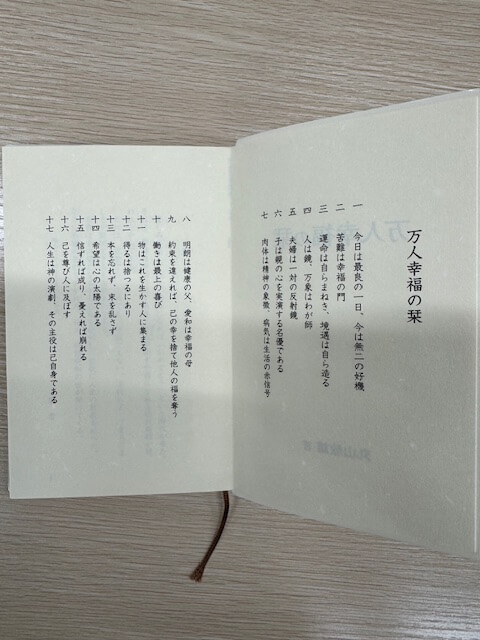 万人幸福の栞
一　今日は最良の一日、今は無二の好機
二　苦難は幸福の門
三　運命は自らまねき、境遇は自ら造る
四　人は鏡、万象はわが師
五　夫婦は一対の反射鏡
六　子は親の心を実演する名優である
七　肉体は精神の象徴、病気は生活の赤信号
八　明朗は健康の父、愛和は幸福の母
九　約束を違えれば、己の幸を捨て他人の福を奪う
十　働きは最上の喜び
十一　物はこれを生かす人に集まる
十二　得るは捨つるにあり
十三　本を忘れず、末を乱さず
十四　希望は心の太陽である
十五　信ずれば成り、憂えれば崩れる
十六　己を尊び人に及ぼす
十七　人生は神の演劇、その主役は己自身である